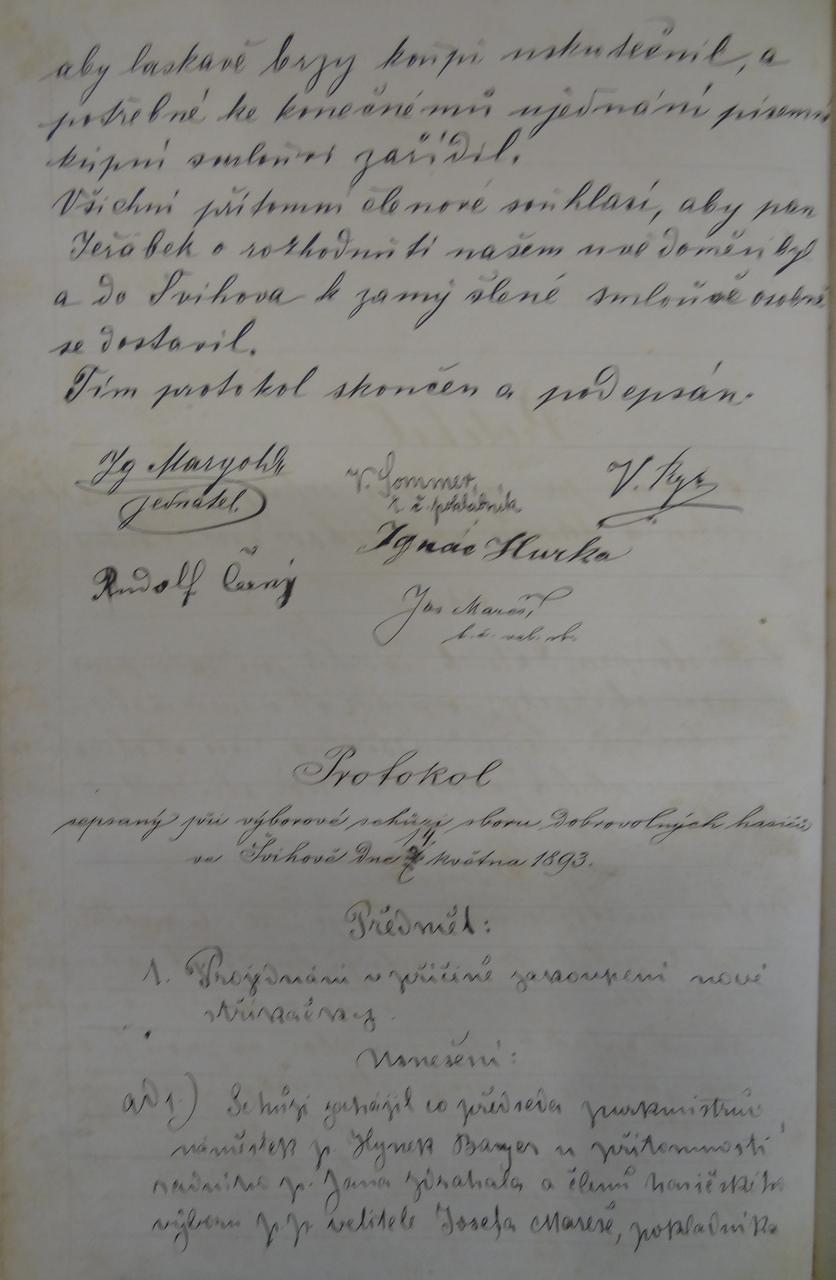 aby laskavě brzy koupi uskutečnil, a
potřebné ke konečnému ujednání písemní
kupní smlouvi zařídil.
Všichni přítomní členové souhlasí, aby pan
Jeřábek o rozhodnutí našem uvědoměn byl
a do Švihova k zamýšlené smlouvě osobně
se dostavil.
Tím protokol skončen a podepsán.
jednatel.
V. Sommer,
t. č. pokladník
Ignác Hurka
Rudolf Černý
Jos Mareš,
t. č. vel. sb.
Protokol
sepsaný při výborové schůzi sboru dobrovolných hasičů
ve Švihově dne května 1893.
Předmět:
1. Projednání v příčině zakoupení nové
stříkačky.
Usnešení:
ad 1.) Schůzi zahájil co předseda purkmistrův
náměstek p. Hynek Bayer u přítomnosti
radního p. Jana Zdrahala a členů hasičského
výboru p. p. velitele Josefa Mareše, pokladníka